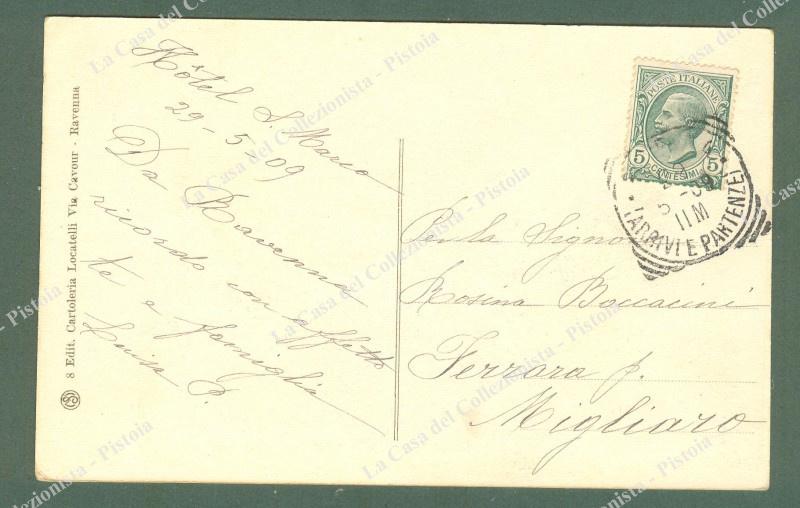 Hôtel S. Marco
29-5-09
Da Ravenna
ricordo con affetto
te e famiglia
Luisa P.
8 Edit. Cartoleria Locatelli Via Cavour - Ravenna
POSTE ITALIANE
5 5
CENTESIMI
11M
(ARRIVI E PARTENZE)
Per la Signora
Rosina Boccacini
Ferrara p.
Migliaro
La Casa del Collezionista - Pistoia